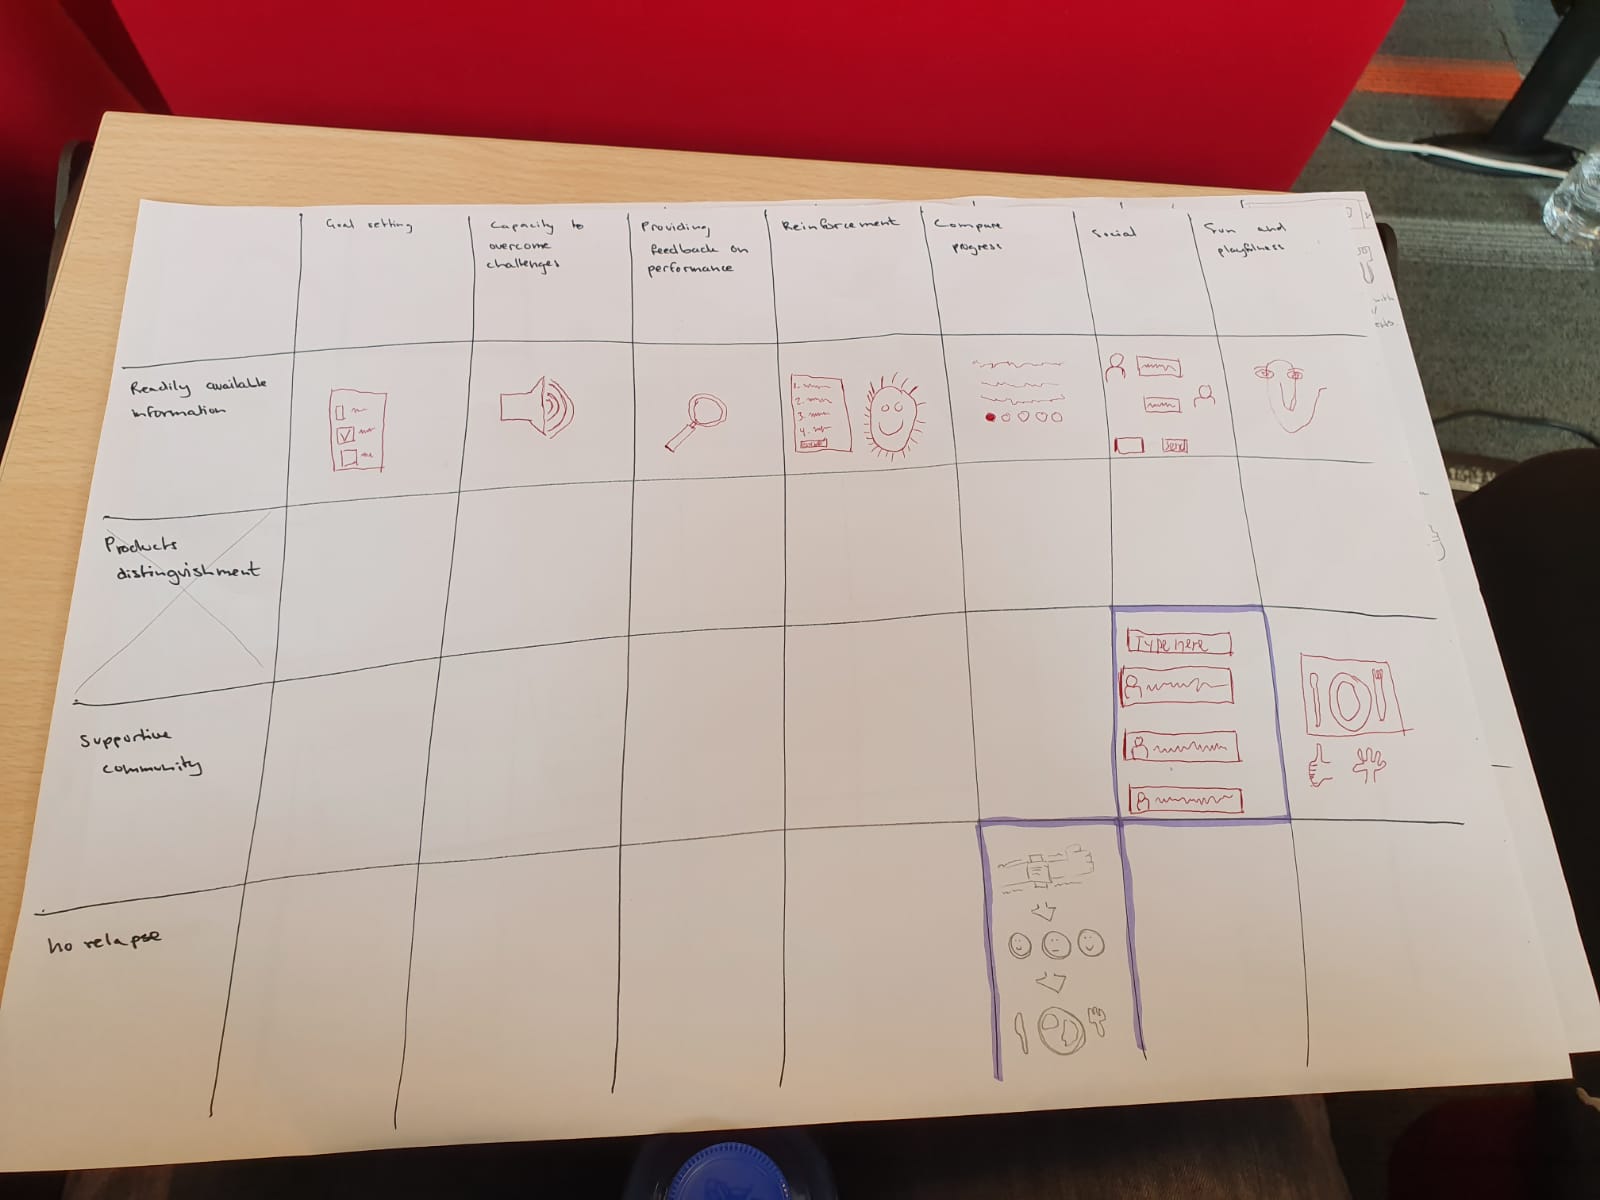 Goal setting
Capacity to
overcome
challenges
Providing
feedback on
performance
Reinforcement
Compare
progress
Social
Fun and
playfulness
Readily available
information
1.
2.
3.
4.
Send
Products
distinguishment
Supportive
community
Type here
No relapse
with